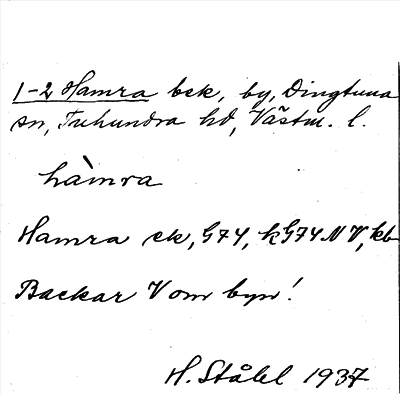 1-2 Hamra bek, by, Dingtuna
sn, Tuhundra hd, Västm. l.
hàmra
Hamra ek, G74, kG74 NV, kb
Backar V om byn!
H. Ståhl 1937